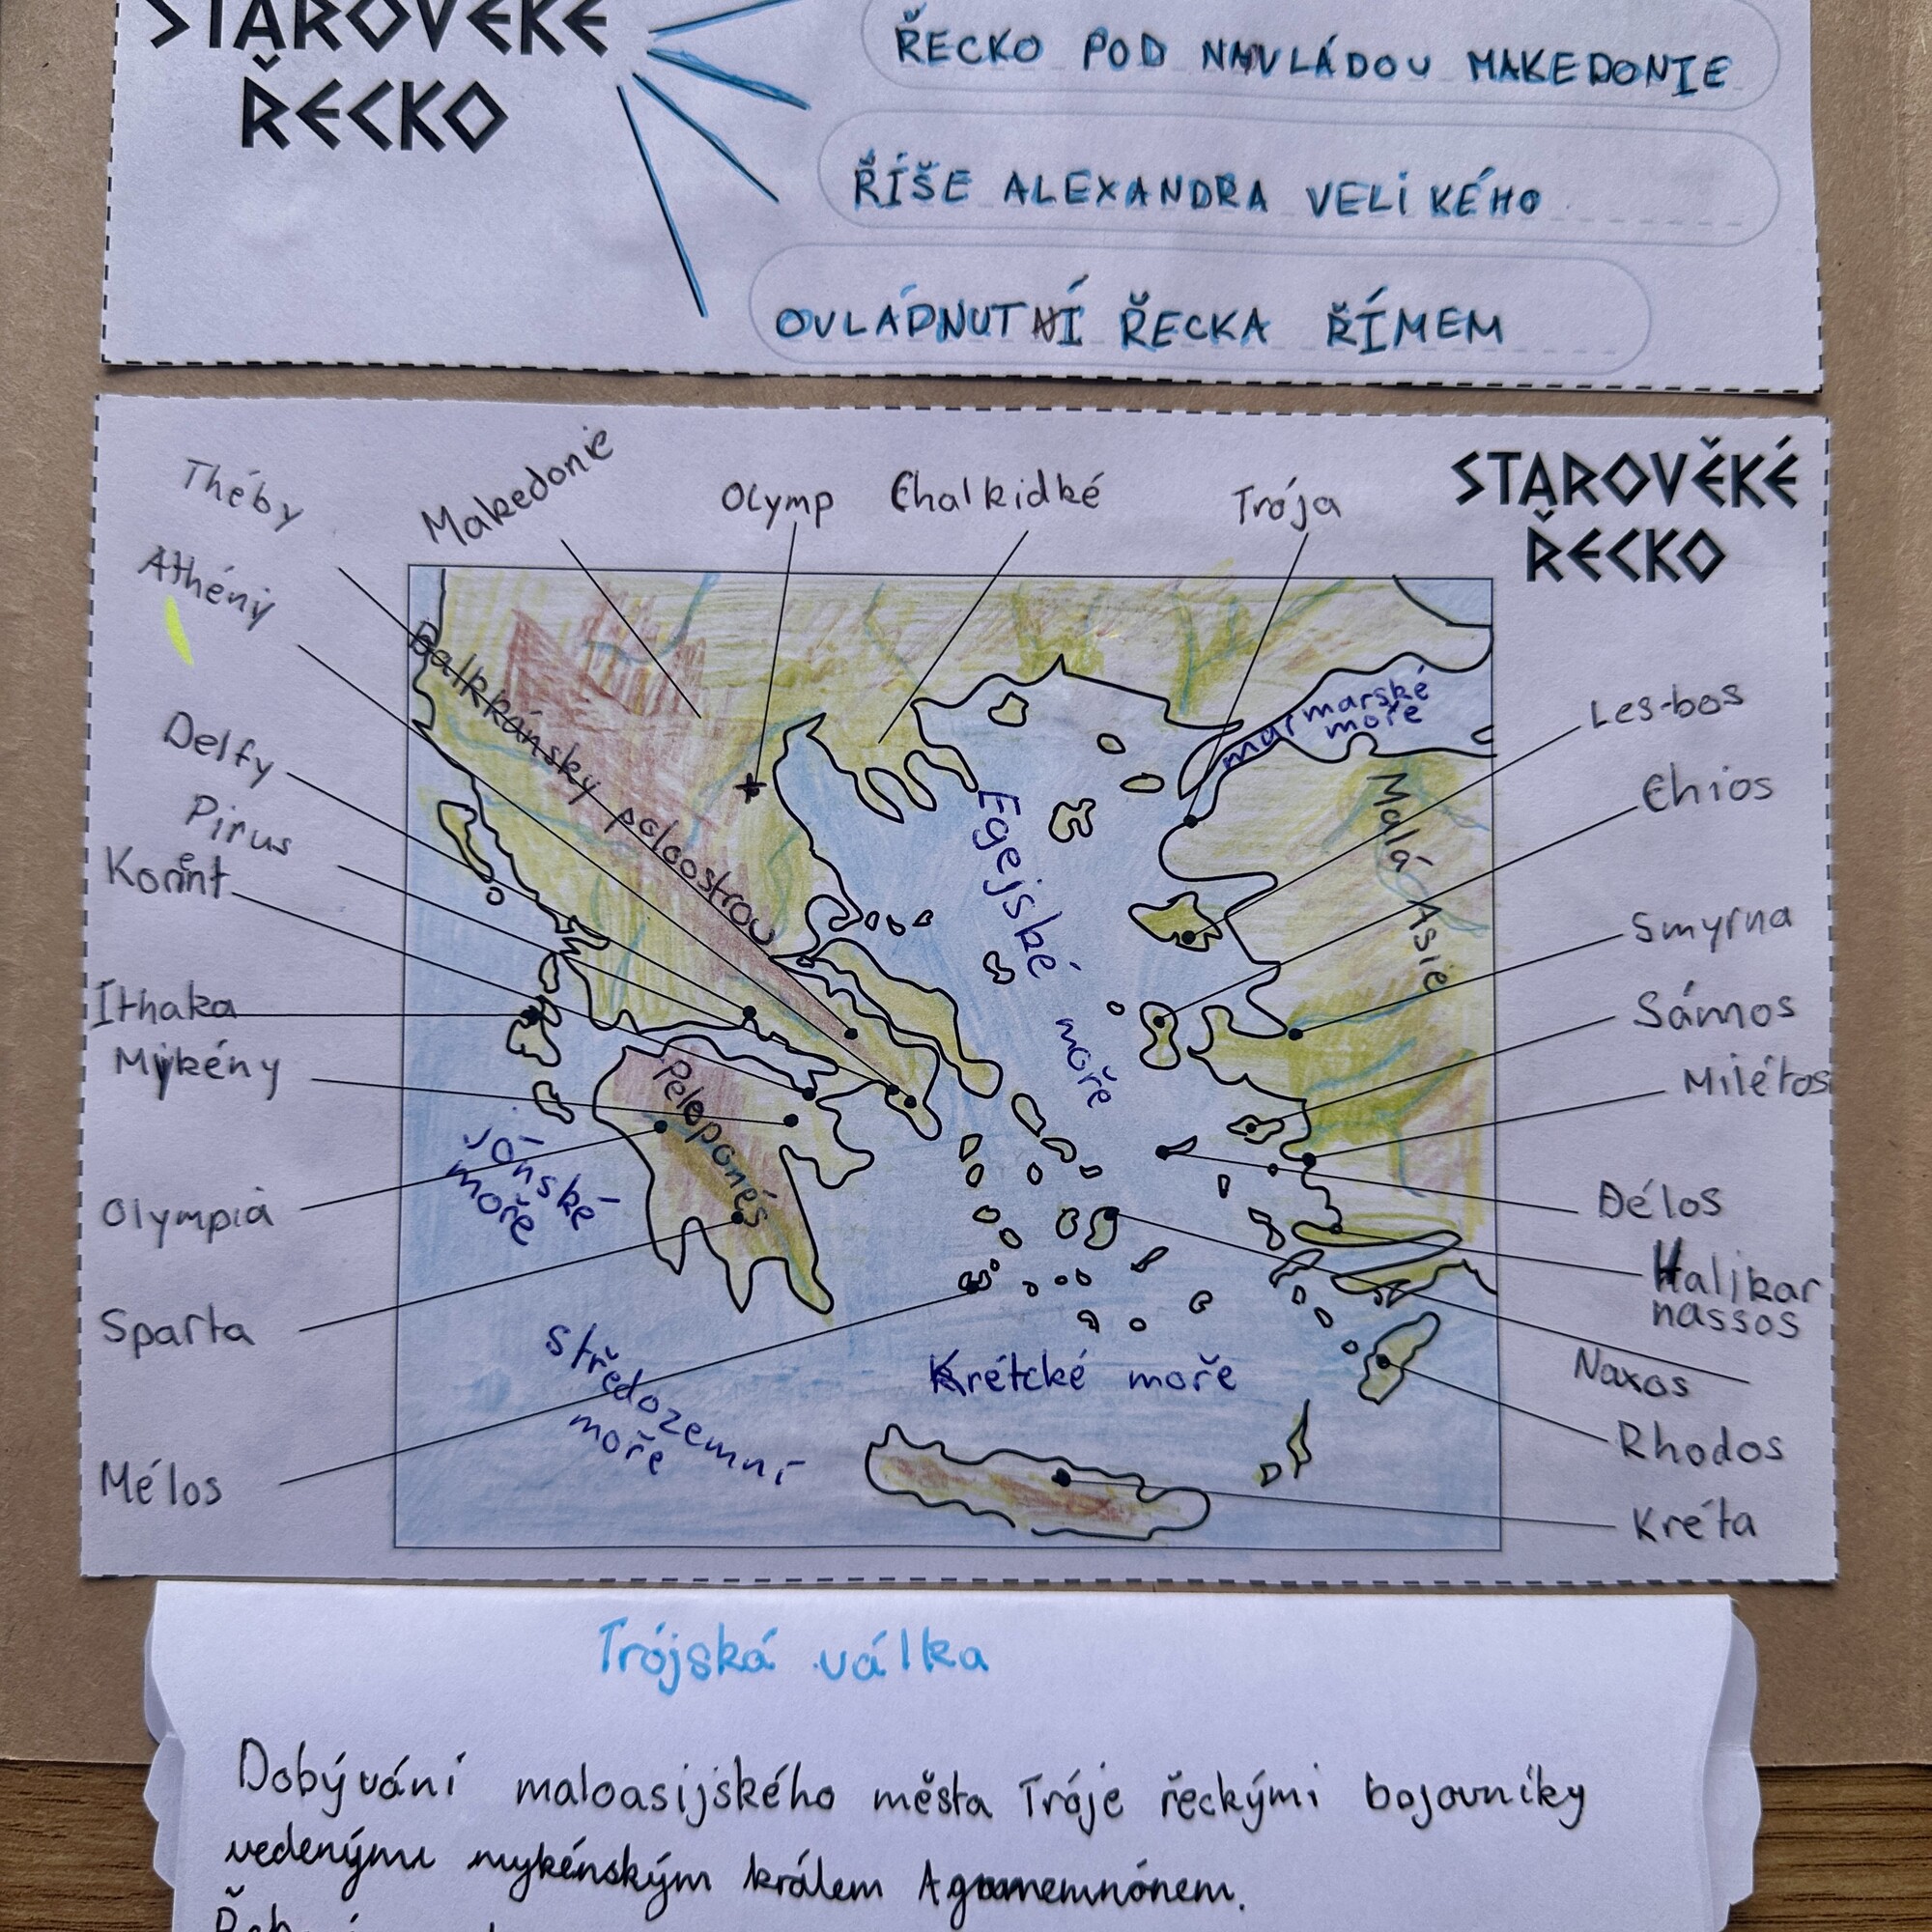 STAROVĚKÉ
ŘECKO
ŘECKO POD NAVLÁDOU MAKEDONIE
ŘÍŠE ALEXANDRA VELIKÉHO
OVLÁDNUTÍ ŘECKA ŘÍMEM
STAROVĚKÉ
ŘECKO
Théby
Makedonie
Olymp
Chalkidké
Trója
Athény
Delfy
Pirus
Korint
Ithaka
Mykény
Olympia
Sparta
Mélos
Balkkánsky poloostrov
Egejské moře
marmarské
moře
Malá Asie
Peleponés
Jónské
moře
středozemní
moře
Krétcké moře
Les-bos
Chios
Smyrna
Sámos
Milétos
Délos
Halikar
nassos
Naxos
Rhodos
Kréta
Trójská válka
Dobývání maloasijského města Tróje řeckými bojovníky
vedenými mykénským králem Agamemnónem.